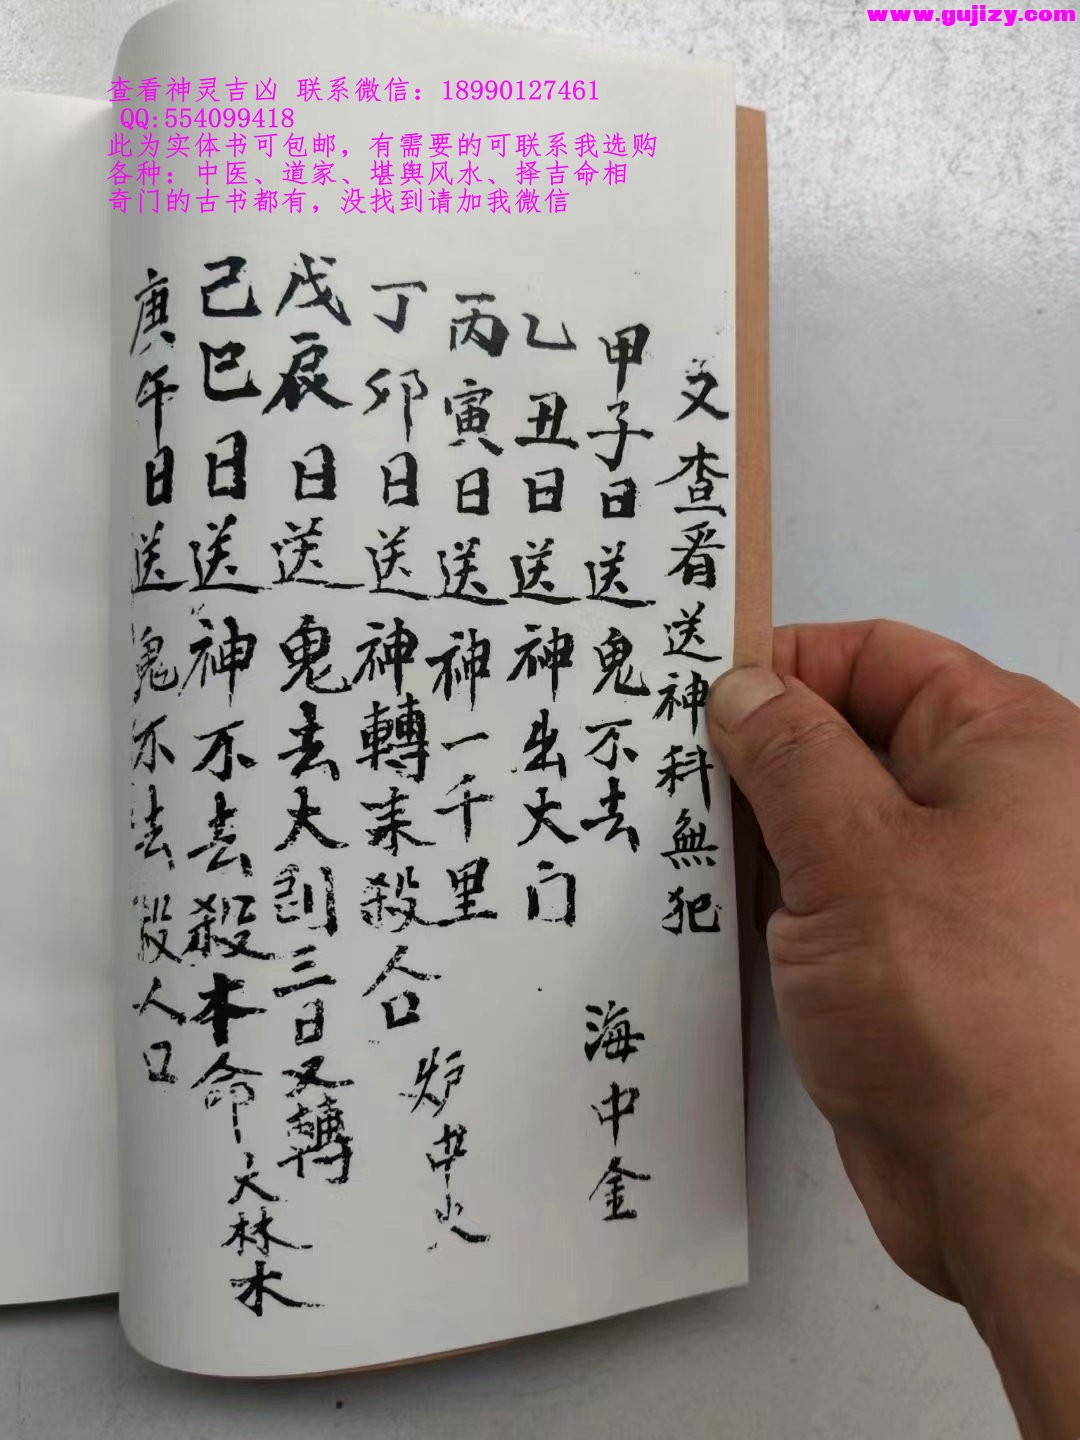 www.gujizy.com
查看神灵吉凶 联系微信：18990127461
QQ:554099418
此为实体书可包邮，有需要的可联系我选购
各种：中医、道家、堪舆风水、择吉命相
奇门的古书都有，没找到请加我微信
又查看送神科無犯
甲子日送鬼不去 海中金
乙丑日送神出大门
丙寅日送神一千里
丁卯日送神轉来殺人口 炉中火
戊辰日送鬼去大到三日又轉
己巳日送神不去殺本命 大林木
庚午日送鬼不去殺人口